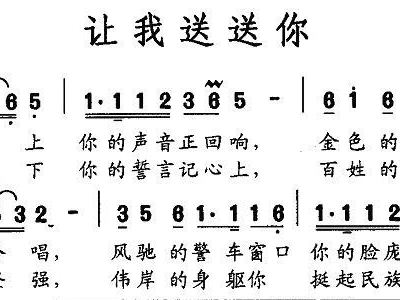 让我送送你
6 5 | 1·1 1 2 3 6 5 - | 6 i 6
上 你的声音正回响， 金色的
下 你的誓言记心上， 百姓的
3 2 - | 3 5 6 1·1 0 1 2 0 | 1·1 1 2
唱， 风驰的警车窗口 你的脸庞
强， 伟岸的身躯你 挺起民族